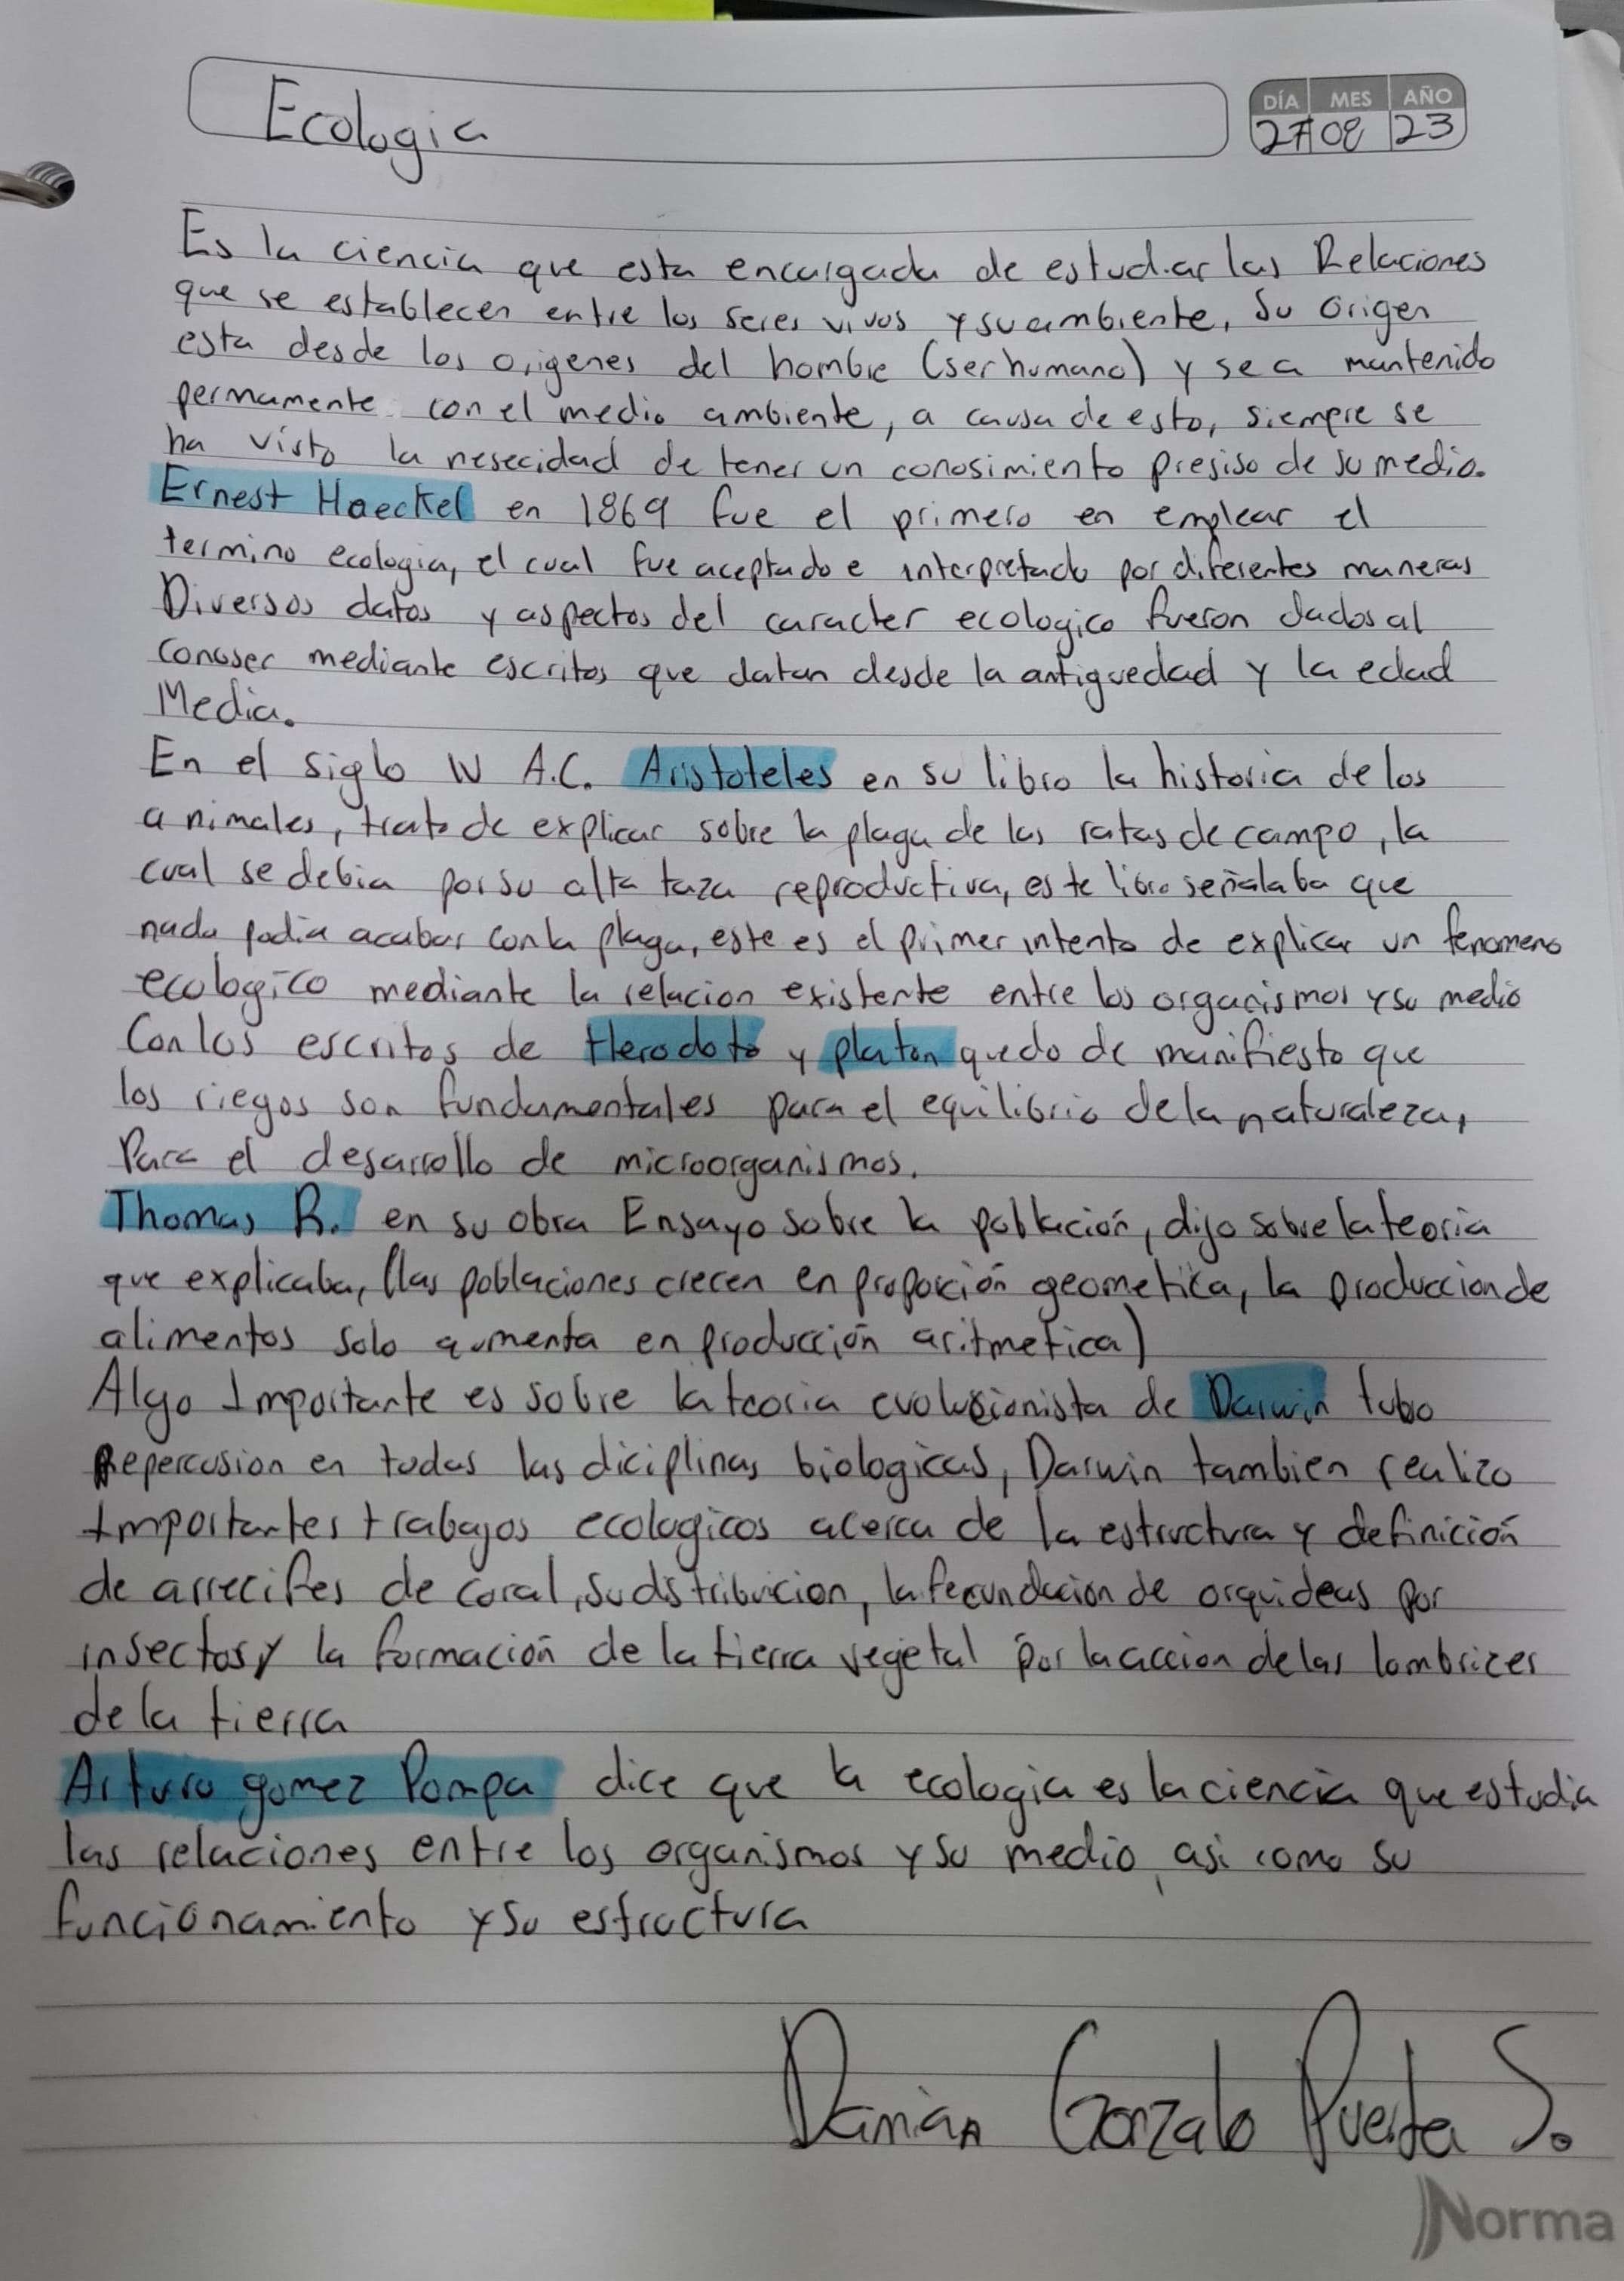 Ecologia
DÍA MES AÑO
27 08 23
Es la ciencia que esta encargada de estudiar las Relaciones
que se establecen entre los seres vivos y su ambiente, Su origen
esta desde los origenes del hombre (ser humano) y se a mantenido
permamente con el medio ambiente, a causa de esto, siempre se
ha visto la nesecidad de tener un conosimiento presiso de su medio.
Ernest Haeckel en 1869 fue el primero en emplear el
termino ecologia, el cual fue aceptado e interpretado por diferentes maneras
Diversos datos y aspectos del caracter ecologico fueron dados al
conoser mediante escritos que datan desde la antiguedad y la edad
Media.
En el siglo IV A.C. Aristoteles en su libro la historia de los
animales, trato de explicar sobre la plaga de las ratas de campo, la
cual se debia por su alta taza reproductiva, este libro señalaba que
nada podia acabar con la plaga, este es el primer intento de explicar un fenomeno
ecologico mediante la relacion existente entre los organismos y su medio
Con los escritos de Herodoto y platon quedo de manifiesto que
los riegos son fundamentales para el equilibrio de la naturaleza,
Para el desarrollo de microorganismos.
Thomas R. en su obra Ensayo sobre la población, dijo sobre la teoria
que explicaba, (las poblaciones crecen en proporción geometrica, la produccion de
alimentos solo aumenta en producción aritmetica)
Algo Importante es sobre la teoria evolucionista de Darwin tubo
Repercusion en todas las diciplinas biologicas, Darwin tambien realizo
Importantes trabajos ecologicos acerca de la estructura y definición
de arrecifes de coral, su distribucion, la fecundacion de orquideas por
insectos y la formación de la tierra vegetal por la accion de las lombrices
de la tierra
Arturo gomez Pompa dice que la ecologia es la ciencia que estudia
las relaciones entre los organismos y su medio, asi como su
funcionamiento y su estructura
Damian Gonzalo Puerta S.
Norma